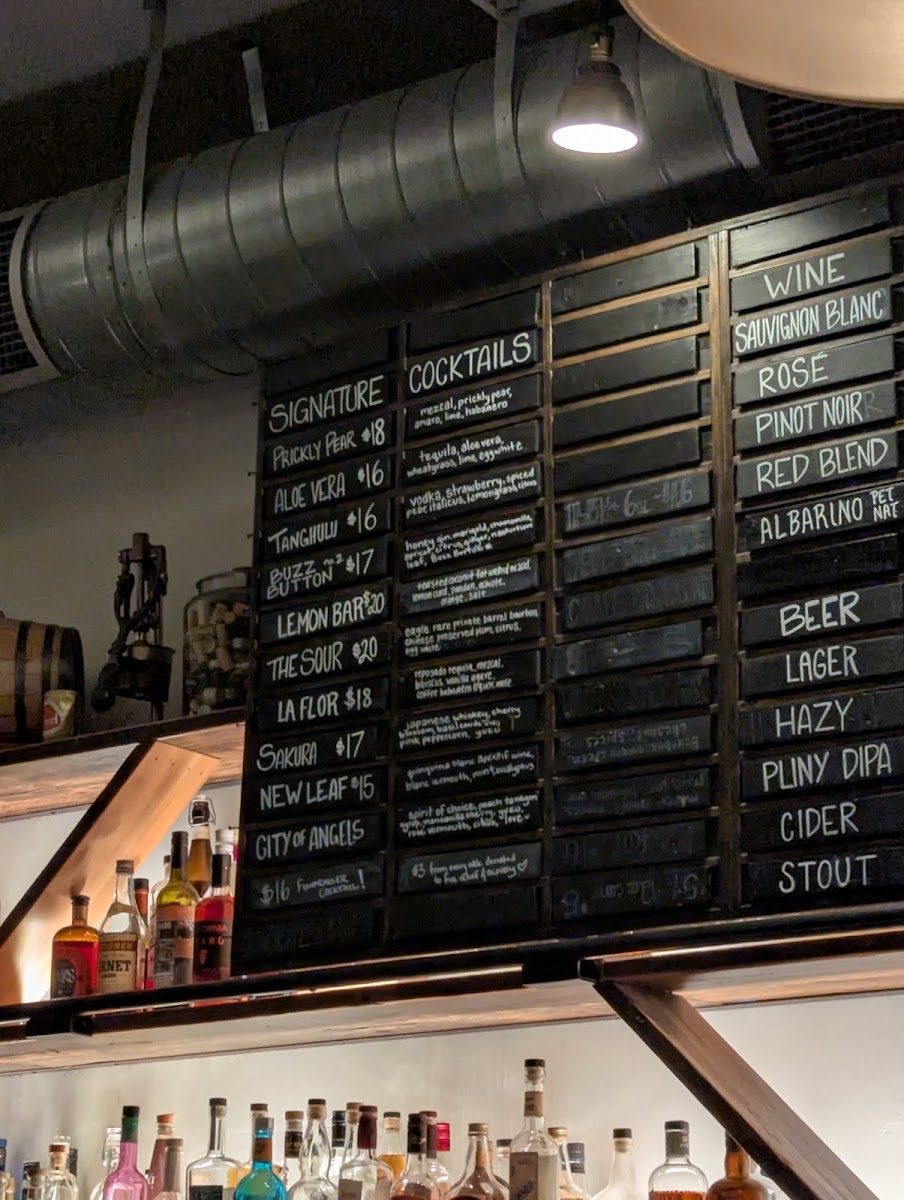 SIGNATURE COCKTAILS
PRICKLY PEAR $18
mezcal, prickly pear,
amaro, lime, habanero
ALOE VERA $16
tequila, aloe vera,
wheatgrass, lime, eggwhite
TANGHULU $16
vodka, strawberry, spiced
pear, italicus, lemongrass, citrus
BUZZ BUTTON no.2 $17
honey gin, marigold, chamomile,
apricot, citrus, ginger, nasturtium
leaf, Buzz Button
LEMON BAR $20
toasted coconut fat washed mezcal,
lemon curd, pandan,
orange, salt
THE SOUR $20
eagle rare private barrel bourbon,
chinese preserved plum, citrus,
egg white
LA FLOR $18
reposado tequila, mezcal,
hibiscus, vanilla agave,
coffee habanero liquor, mole
SAKURA $17
japanese whiskey, cherry
blossom,
pink peppercorn, yuzu
NEW LEAF $15
quinquina blanc aperitif wine,
blanc vermouth, mint, eucalyptus
CITY OF ANGELS
spirit of choice, peach
syrup, manzanilla sherry, yuzu,
rose vermouth, citrus, love
$16 FUNDRAISER
COCKTAIL!
$3 from every sale donated
to fire relief & recovery
WINE
SAUVIGNON BLANC
ROSÉ
PINOT NOIR
RED BLEND
ALBARINO PET
NAT
BEER
LAGER
HAZY
PLINY DIPA
CIDER
STOUT